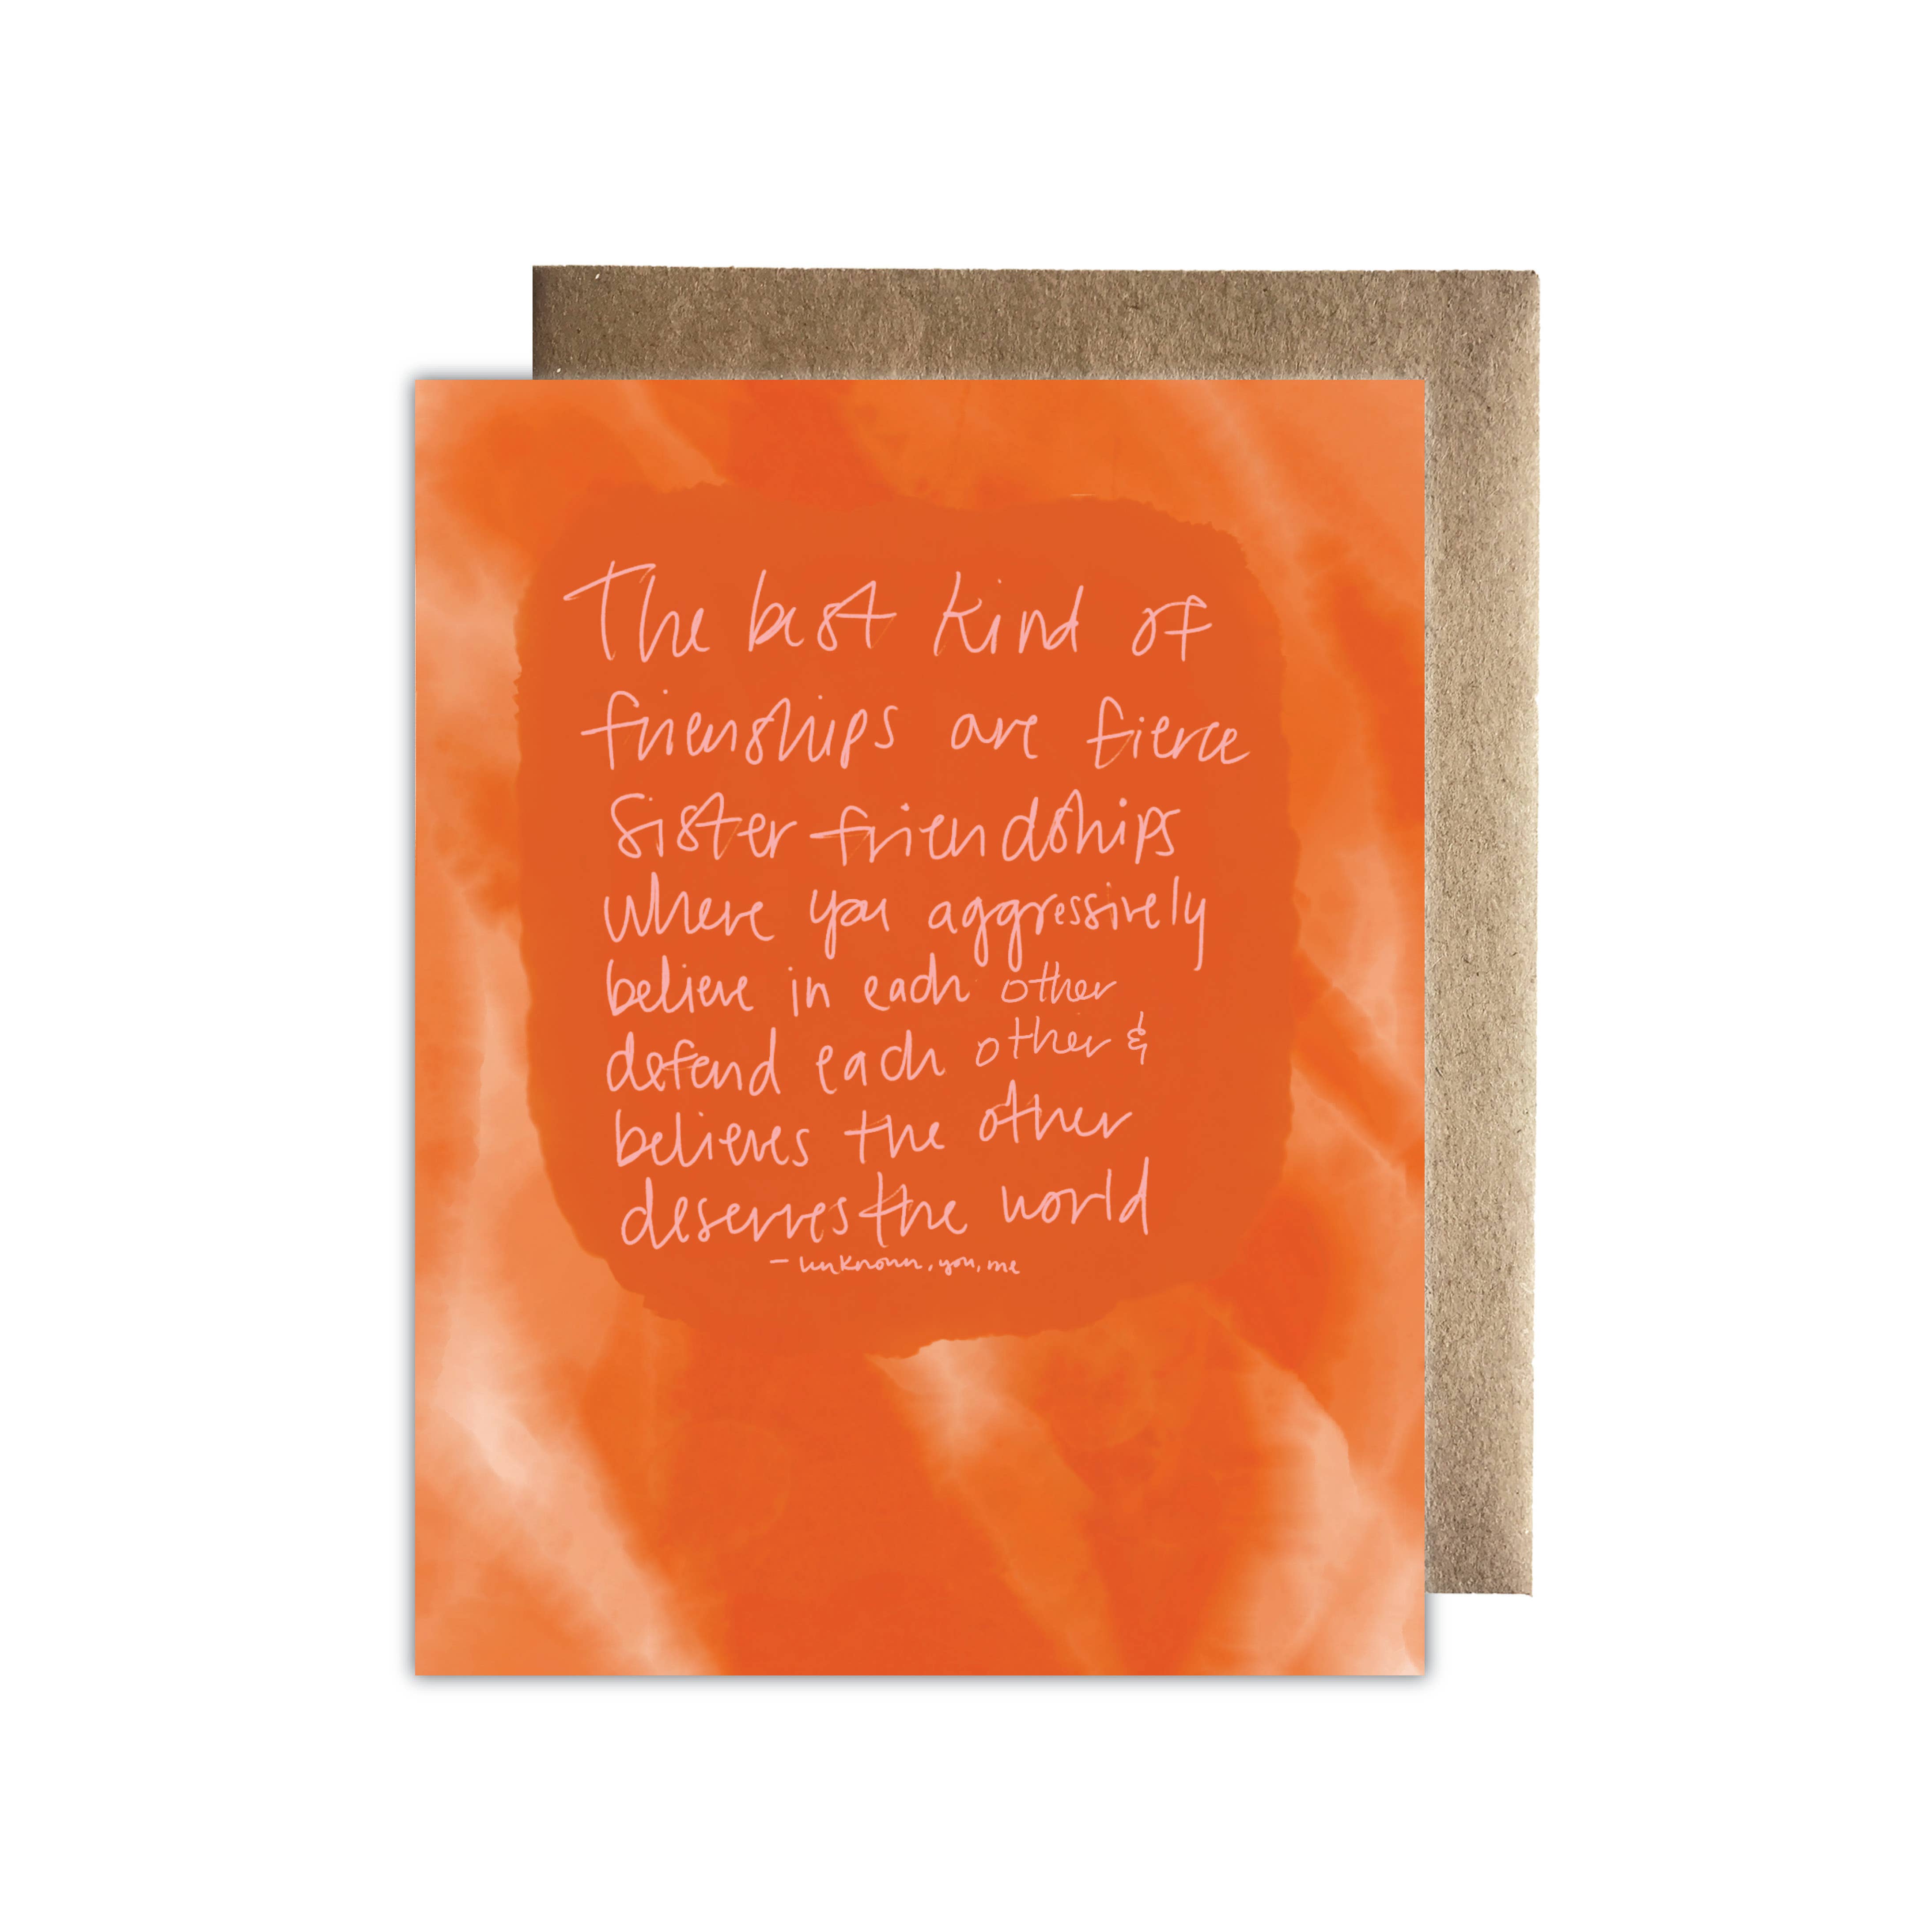 The best kind of
frienships are fierce
Sister friendships
where you aggressively
believe in each other
defend each other &
believes the other
deserves the world
- unknown, you, me